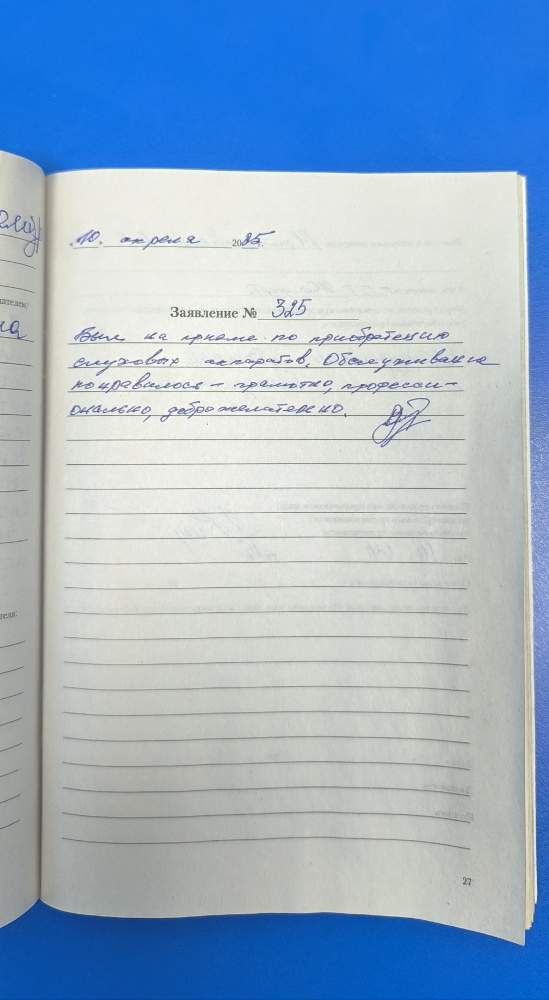 10. апреля 2025.
Заявление № 325
Был на приеме по приобретению
слуховых аппаратов. Обслуживание
понравилося – грамотно, професси-
онально, доброжелательно.
27